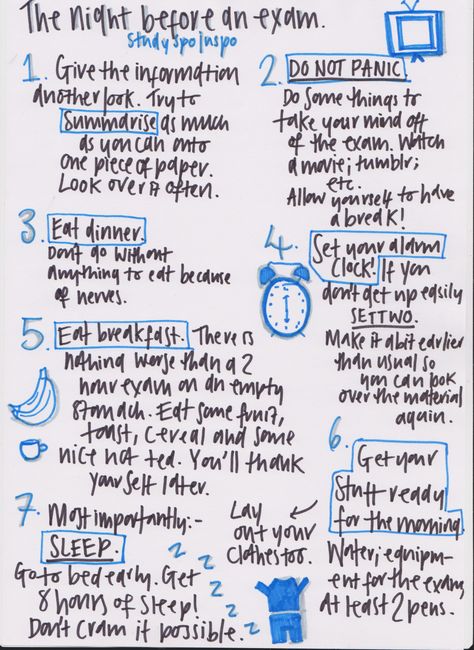 The night before an exam.
studyspoinspo
1. Give the information
another look. Try to
summarise as much
as you can onto
one piece of paper.
Look over it often.
2. DO NOT PANIC
Do some things to
take your mind off
of the exam. Watch
a movie; tumblr;
etc.
Allow yourself to have
a break!
3. Eat dinner.
Dont go without
anything to eat because
of nerves.
4. Set your alarm
clock! If you
don't get up easily
SET TWO.
Make it a bit earlier
than usual so
you can look
over the material
again.
5. Eat breakfast. There is
nothing worse than a 2
hour exam on an empty
stomach. Eat some fruit,
toast, cereal and some
nice hot tea. You'll thank
yourself later.
6. Get your
stuff ready
for the morning
Water; equipm-
ent for the exam,
at least 2 pens.
Lay
out your
clothes too.
7. Most importantly:-
SLEEP.
Go to bed early. Get
8 hours of sleep!
Don't cram if possible.
z
z
z
z
z